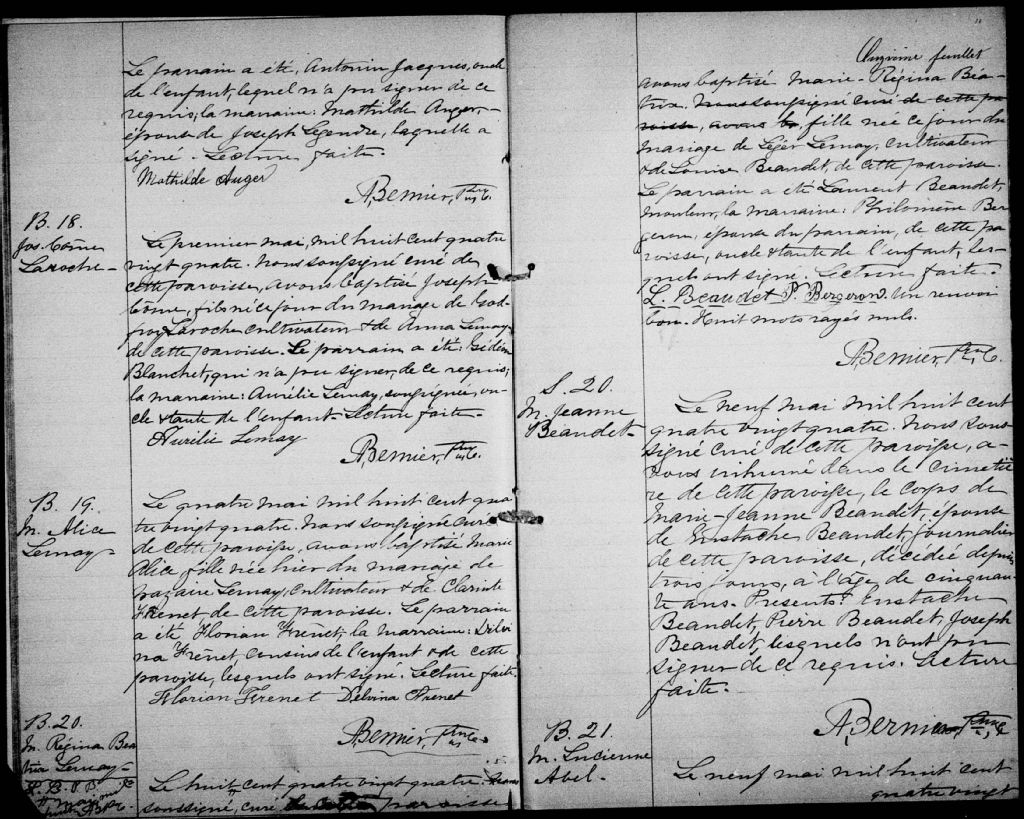 Le parrain a été, Antonin Jacques, oncle
de l'enfant, lequel n'a pu signer de ce
requis, la marraine: Mathilde Auger,
épouse de Joseph Legendre, laquelle a
signé. Lecture faite.
Mathilde Auger
A. Bernier, Ptre
B. 18.
Jos. Côme
Laroche
Le premier mai, mil huit cent quatre
vingt quatre. Nous soussigné curé de
cette paroisse, avons baptisé Joseph
Côme, fils né ce jour du mariage de God-
froy Laroche cultivateur & de Anna Lemay
de cette paroisse. Le parrain a été: Gédéon
Blanchet, qui n'a pu signer, de ce requis;
la marraine: Aurélie Lemay, soussignée, on-
cle & tante de l'enfant. Lecture faite.
Aurélie Lemay
A. Bernier, Ptre
B. 19.
M. Alice
Lemay
Le quatre mai mil huit cent qua
tre vingt quatre. Nous soussigné curé
de cette paroisse, avons baptisé Marie
Alice, fille née hier du mariage de
Nazaire Lemay, cultivateur & de Clarinte
Frenet de cette paroisse. Le parrain
a été Florian Frenet, la marraine: Délvi
na Frenet cousins de l'enfant & de cette
paroisse, lesquels ont signé. Lecture faite.
Florian Frenet Délvina Frenet
A. Bernier, Ptre
B. 20.
M. Régina Béa
trix Lemay
Le huit cent quatre vingt quatre. Nous
soussigné, curé de cette paroisse
Onzième feuillet
avons baptisé Marie-Régina Béa-
trix. Nous soussigné curé de cette pa
roisse, avons ba fille née ce jour du
mariage de Léger Lemay, cultivateur
& de Louise Beaudet, de cette paroisse.
Le parrain a été Laurent Beaudet,
mouleur, la marraine: Philomène Ber
geron, épouse du parrain, de cette pa
roisse, oncle & tante de l'enfant, les-
quels ont signé. Lecture faite.
L. Beaudet P. Bergeron. Un renvoi
bon. Huit mots rayés nuls.
A. Bernier, Ptre
S. 20.
M. Jeanne
Beaudet
Le neuf mai mil huit cent
quatre vingt quatre. Nous sous-
signé curé de cette paroisse, a-
vons inhumé dans le cimetiè
re de cette paroisse, le corps de
Marie-Jeanne Beaudet, épouse
de Eustache Beaudet, journalier
de cette paroisse, décédée depuis
trois jours, à l'âge de cinquan-
te ans. Présents: Eustache
Beaudet, Pierre Beaudet, Joseph
Beaudet, lesquels n'ont pu
signer de ce requis. Lecture
faite.
A. Bernier, Ptre
B. 21.
M. Lucienne
Abel
Le neuf mai mil huit cent
quatre vingt